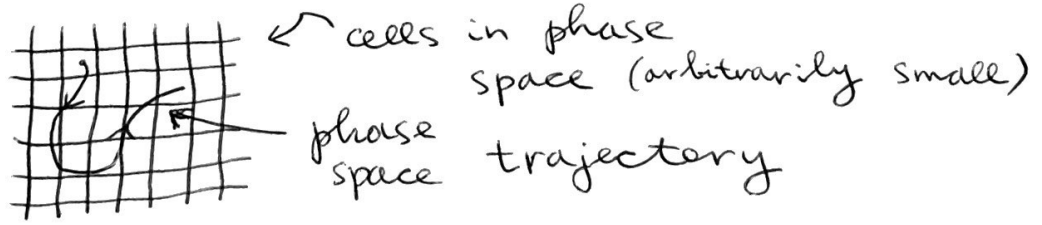 cells in phase
space (arbitrarily small)
phase
space trajectory